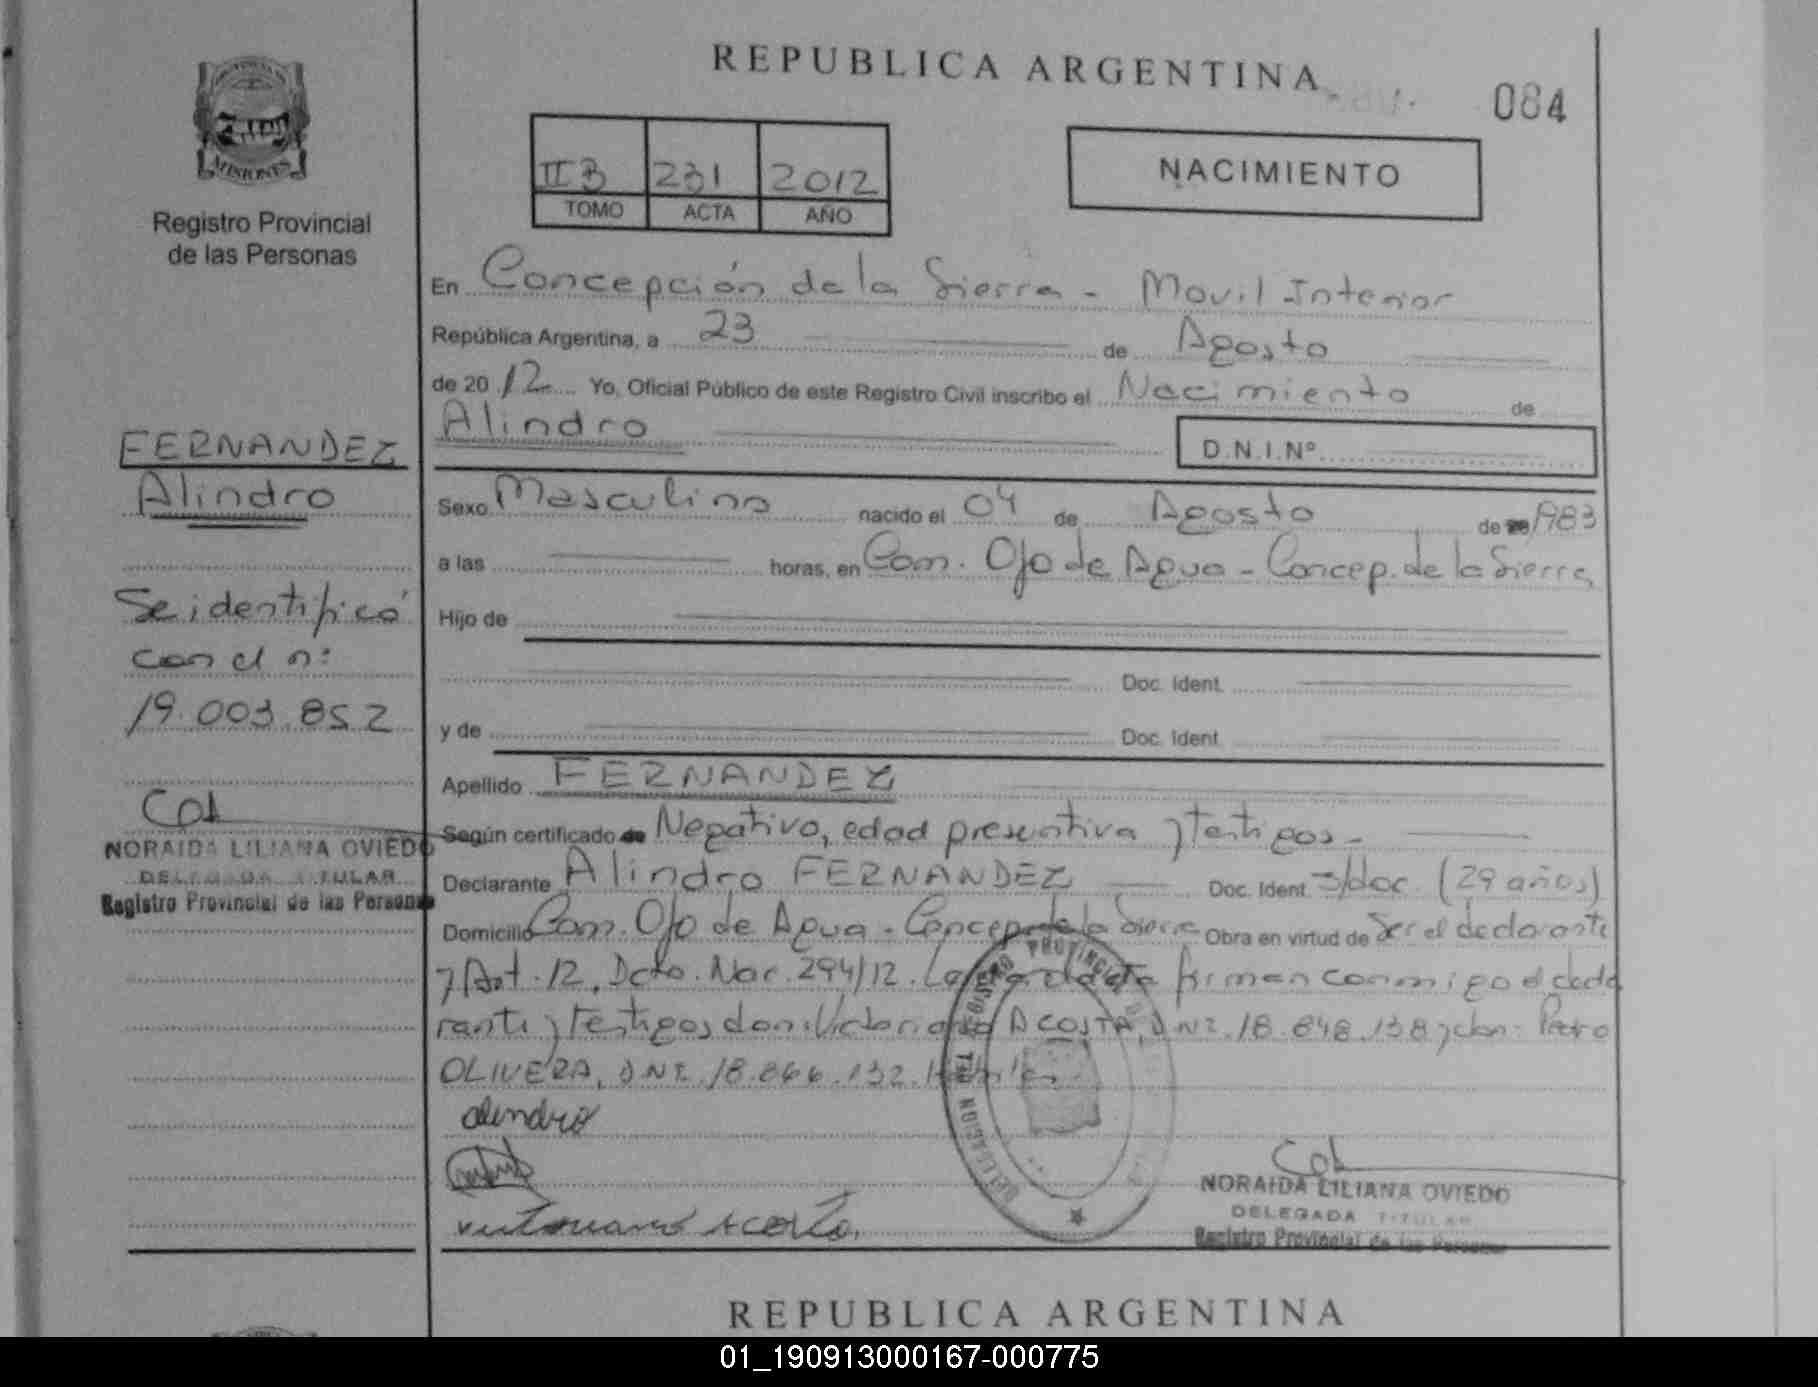 REPUBLICA ARGENTINA
084
MISIONES
Registro Provincial
de las Personas
II B 231 2012
TOMO ACTA AÑO
NACIMIENTO
En Concepción de la Sierra - Movil Interior
República Argentina, a 23 de Agosto
de 2012 Yo, Oficial Público de este Registro Civil inscribo el Nacimiento de
Alindro
D.N.I.Nº
Sexo Masculino nacido el 04 de Agosto de 1983
a las horas, en Com. Ojo de Agua - Concep. de la Sierra
Hijo de
Doc. Ident.
y de Doc. Ident.
Apellido FERNANDEZ
Según certificado de Negativo, edad presuntiva y testigos -
Declarante Alindro FERNANDEZ Doc. Ident. s/doc. (29 años)
Domicilio Com. Ojo de Agua - Concep. de la Sierra Obra en virtud de Ser el declarante
y Art. 12, Dcto. Nac. 294/12. firman conmigo el decla
rante y testigos don: Victoriano ACOSTA, DNI. 18.848.138 y don: Pedro
OLIVERA, DNI. 18.866.132.
alindro
victoriano Acosta.
NORAIDA LILIANA OVIEDO
DELEGADA TITULAR
Registro Provincial de las Personas
FERNANDEZ
Alindro
Se identificó
con el nº
19.003.852
NORAIDA LILIANA OVIEDO
DELEGADA TITULAR
Registro Provincial de las Personas
REPUBLICA ARGENTINA
01_190913000167-000775